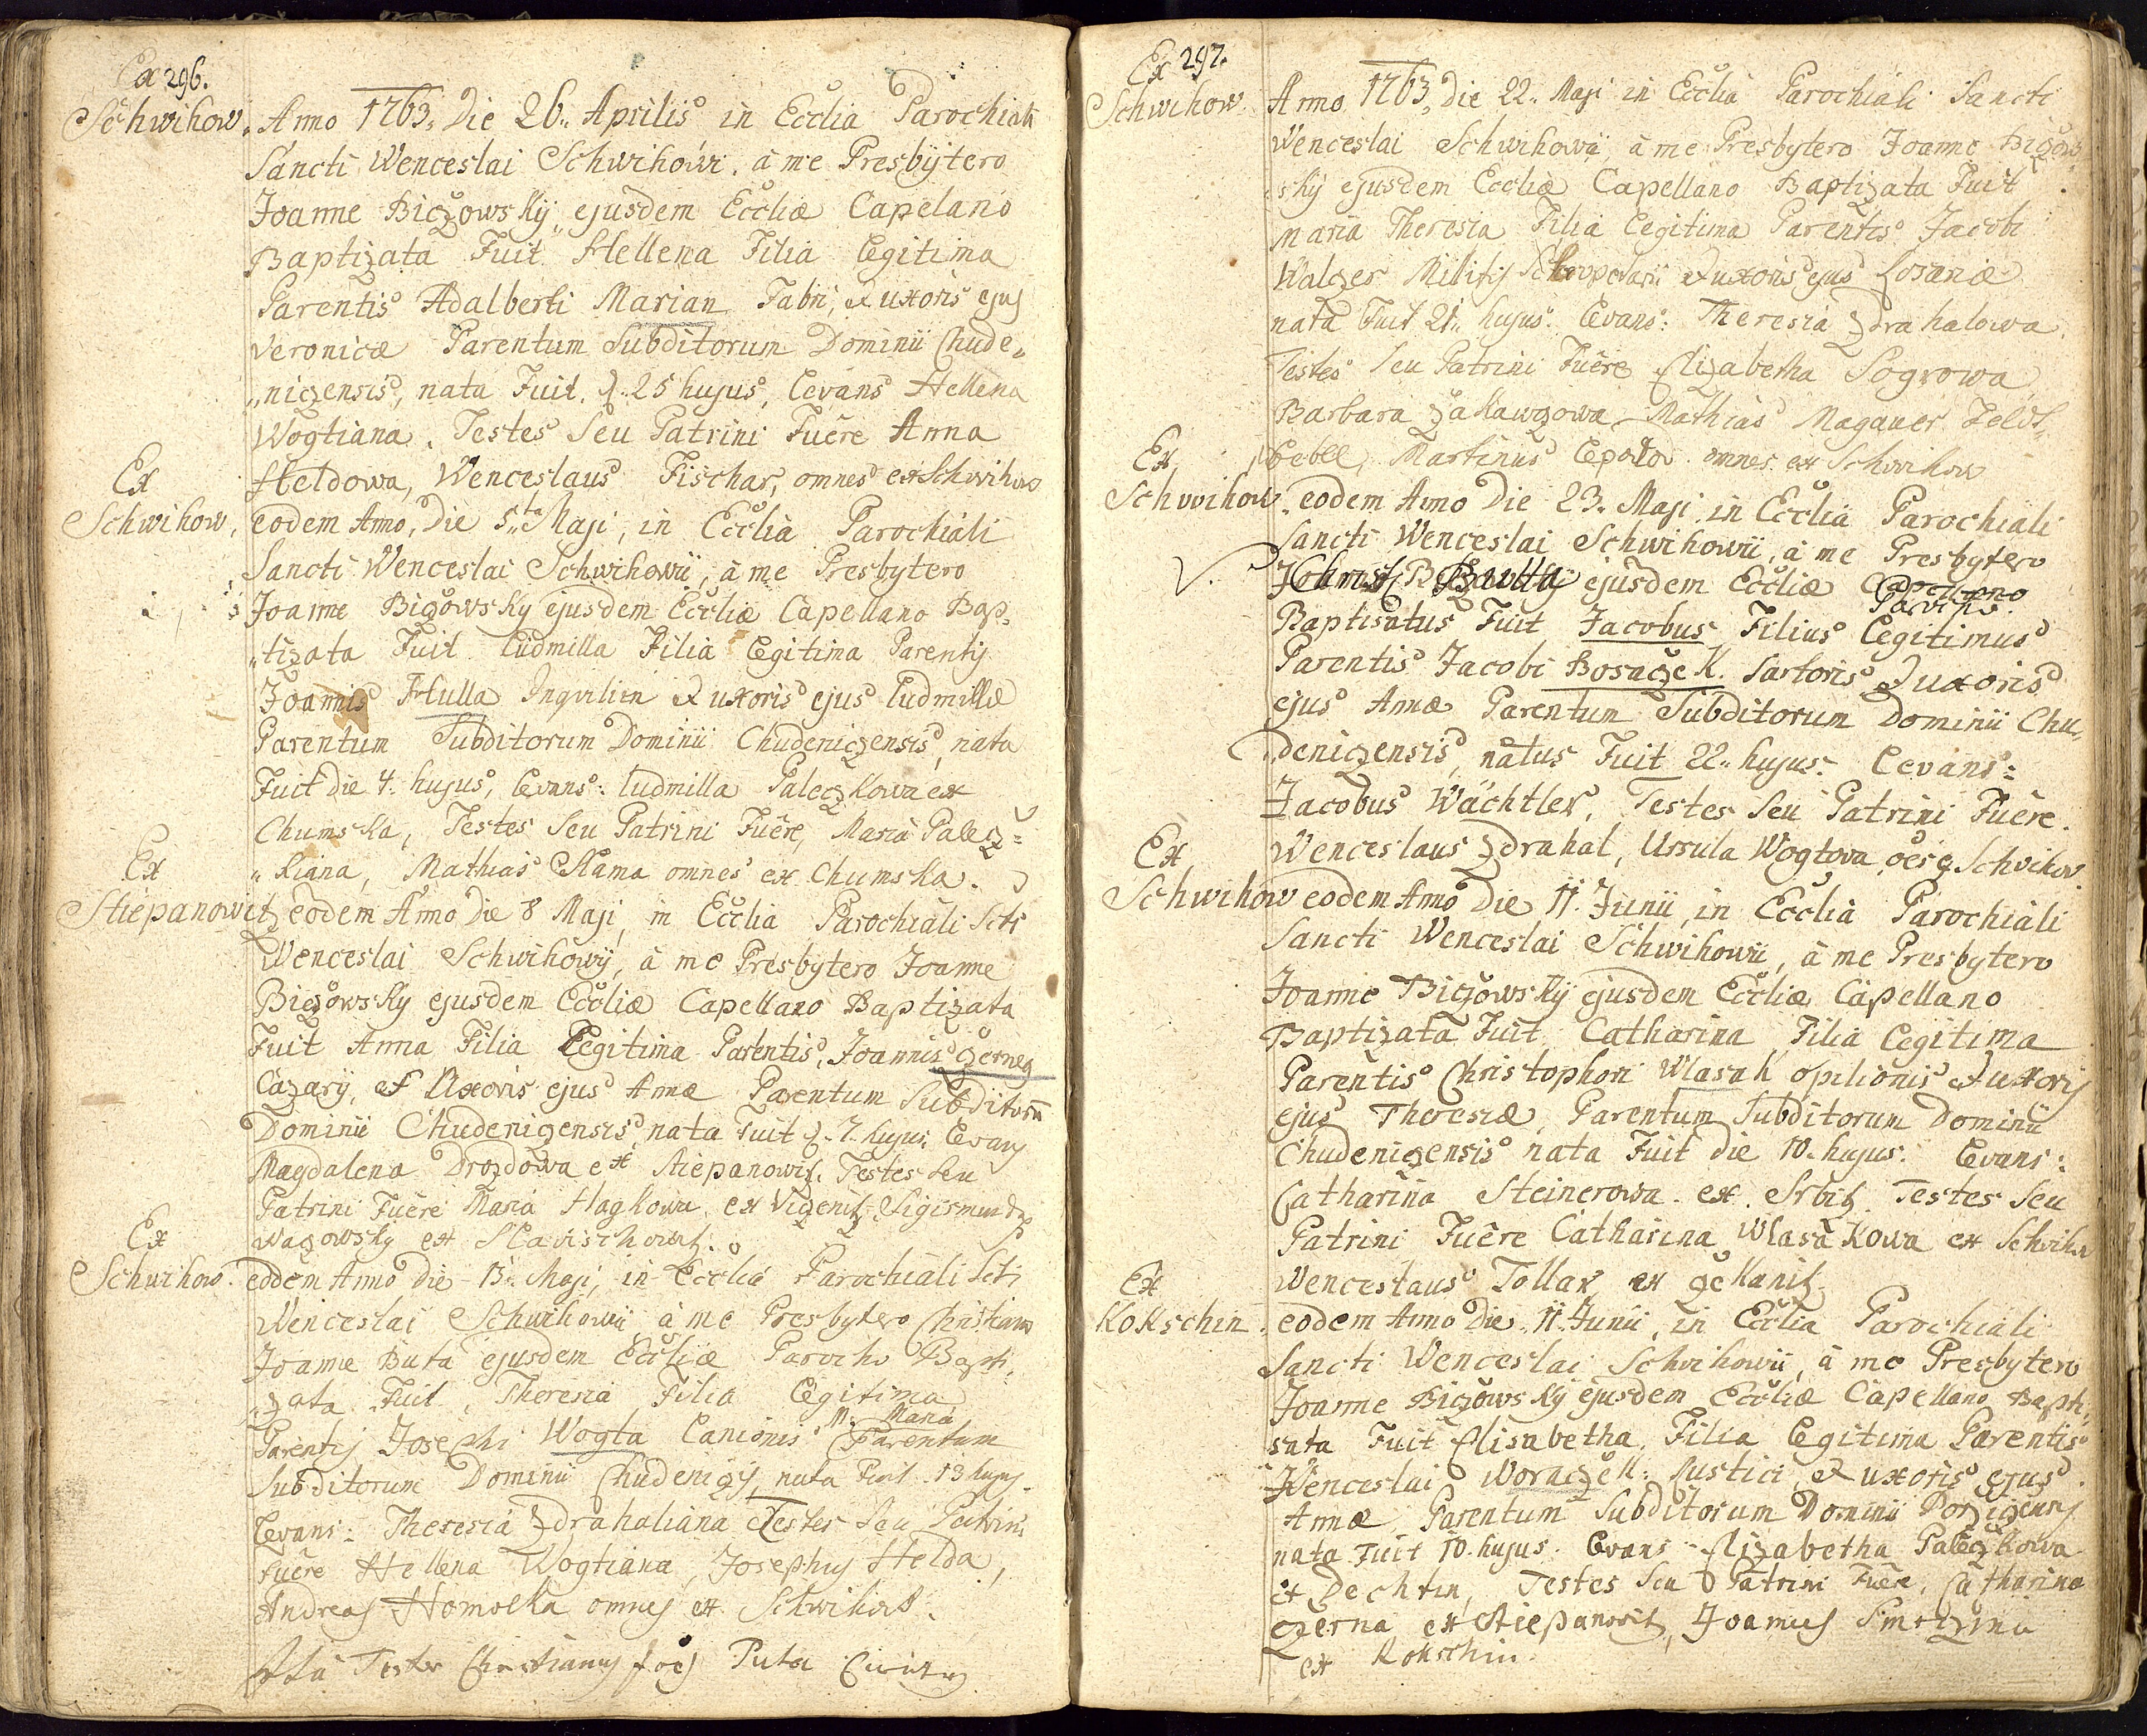 Ex 296.
Schwihow. Anno 1763, Die 26. Aprilis in Ecclia Parochiali
Sancti Wenceslai Schwihowi. à me Presbÿtero
Joanne Biczowskÿ, ejusdem Eccliæ Capelano
Baptizata Fuit Hellena Filia Legitima
Parentis Adalberti Marian Fabri, & uxoris ejus
Veronicæ Parentum Subditorum Dominii Chude„
„niczensis, nata Fuit. d. 25 hujus, Levans Hellena
Wogtiana. Testes Seu Patrini Fuêre Anna
Heldowa, Wenceslaus Fischar, omnes ex Schwihow
Ex
Schwihow, eodem Anno, Die 5ta Maji, in Ecclia Parochiali
Sancti Wenceslai Schwihowii, à me Presbytero
Joanne Biczowsky ejusdem Eccliæ Capellano Bap„
„tizata Fuit Ludmilla Filia Legitima Parentis
Joannis Hulla Inqvilin & uxoris ejus Ludmillæ
Parentum Subditorum Dominii Chudeniczensis, nata
Fuit die 4. hujus, Levans: Ludmilla Paleczkowa ex
Chumska, Testes Seu Patrini Fuêre, Maria Palecz=
„kiana, Mathias Slama omnes ex Chumska.
Ex
Stiepanowitz eodem Anno Die 8 Maji, in Ecclia Parochiali Scti
Wenceslai Schwihowÿ, à me Presbytero Joanne
Biczowsky ejusdem Eccliæ Capellano Baptizata
Fuit Anna Filia Legitima Parentis, Joannis Czerney
Cazarÿ, et Uxoris ejus Annæ Parentum Subditorum
Dominii Chudenizensis, nata Fuit d. 7. hujus Levans
Magdalena Drozdowa ex Stiepanowitz. Testes Seu
Patrini Fuêre Maria Hagkowa, ex Vizenitz, Sigismund
wazowsky ex
Ex
Schwihow. eodem Anno Die 13. Maji, in Ecclia Parochiali Scti
Wenceslai Schwihowii à me Presbytero Christiano
Joanne Buta ejusdem Eccliæ Parocho Bapti„
„zata Fuit, Theresia Filia Legitima
Parentis Josephi Wogta Lanionis M. Maria Parentum
Subditorum Dominii Chudenizÿ, nata Fuit 13 hujus.
Levans: Theresia Zdrahaliana Testes Seu Patrini
Fuêre Hellena Wogtiana, Josephus Helda,
Andreas Homolka omnes ex Schwihow.
Ita Testor Christianus Joes Puta Curatus
Ex 297.
Schwihow. Anno 1763, Die 22. Maji in Ecclia Parochiali Sancti
Wenceslai Schwihowii à me Presbytero Joanne Biczow„
„skÿ ejusdem Eccliæ Capellano Baptizata Fuit
Maria Theresia Filia Legitima Parentis Jacobi
Walczer Militis & uxoris ejus Rosaniæ
nata Fuit 21. hujus. Levans: Theresia Zdrahalowa
Testes Seu Patrini Fuêre Elizabetha Sogrowa
Barbara Zakawzowa Mathias Magauer Feldt„
webel, Martinus Lepold omnes ex Schwihow
Ex
Schwihow. eodem Anno Die 23. Maji in Ecclia Parochiali
Sancti Wenceslai Schwihowii, à me Presbytero
ejusdem Eccliæ Capellano
Parocho.
Baptisatus Fuit Jacobus Filius Legitimus
Parentis Jacobi Bosaczek Sartoris & uxoris
ejus Annæ Parentum Subditorum Dominii Chu„
deniczensis, natus Fuit 22. hujus. Levans:
Jacobus Wächtler, Testes Seu Patrini Fuêre.
Wenceslaus Zdrahal, Ursula Wogtova, oes e Schvihov
Ex
Schwihow eodem Anno Die 11. Junii, in Ecclia Parochiali
Sancti Wenceslai Schwihowii, à me Presbytero
Joanne Biczowskÿ ejusdem Eccliæ Capellano
Baptizata Fuit Catharina Filia Legitima
Parentis Christophori Wlasak opilionis & uxoris
ejus Theresiæ, Parentum Subditorum Dominii
Chudenizensis nata Fuit die 10. hujus. Levans:
Catharina Steinerowa. ex Srbitz. Testes Seu
Patrini Fuêre Catharina Wlasakowa ex Schwihow
Wenceslaus Tollar ex
Ex
Kokschin. eodem Anno Die 11. Junii, in Ecclia Parochiali
Sancti Wenceslai Schwihowii, à me Presbytero
Joanne Biczowskÿ ejusdem Eccliæ Capellano Bapti„
sata Fuit Elisabetha, Filia Legitima Parentis
Wenceslai Woraczek: Rustici & uxoris ejus
Annæ Parentum Subditorum Dominii
nata Fuit 10. hujus. Levans - Elizabetha Paleczkowa
ex Dechtin, Testes Seu Patrini Fuêre, Catharina
Czerna ex Stiepanowitz, Joannes
ex Kokschin.